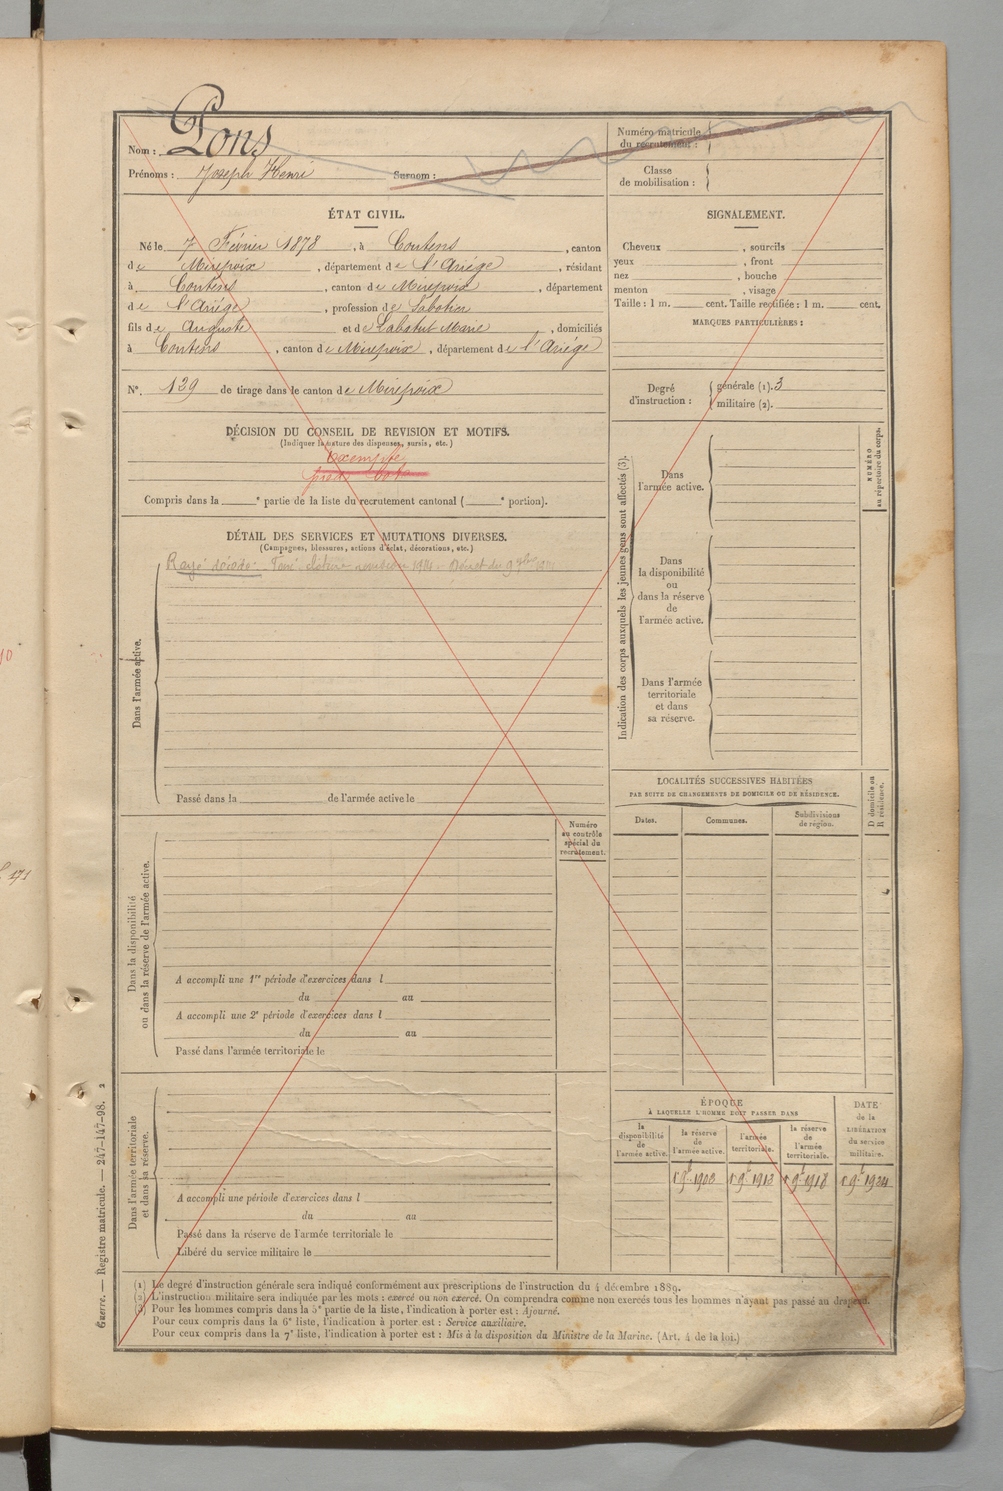 Nom : Pons
Prénoms : Joseph Henri Surnom :
Numéro matricule
du recrutement :
Classe
de mobilisation :
ÉTAT CIVIL.
Né le 7 Février 1878, à Coutens, canton
de Mirepoix, département de l'Ariége, résidant
à Coutens, canton de Mirepoix, département
de l'Ariége, profession de Sabotier
fils de Auguste et de Labatut Marie, domiciliés
à Coutens, canton de Mirepoix, département de l'Ariége
N° 129 de tirage dans le canton de Mirepoix
DÉCISION DU CONSEIL DE REVISION ET MOTIFS.
(Indiquer la nature des dispenses, sursis, etc.)
exempté
pied bot
Compris dans la ___e partie de la liste du recrutement cantonal (___e portion).
DÉTAIL DES SERVICES ET MUTATIONS DIVERSES.
(Campagnes, blessures, actions d'éclat, décorations, etc.)
Rayé décédé.
Dans l'armée active.
Passé dans la de l'armée active le
Numéro
au contrôle
spécial du
recrutement.
Dans la disponibilité
ou dans la réserve de l'armée active.
A accompli une 1re période d'exercices dans l
du au
A accompli une 2e période d'exercices dans l
du au
Passé dans l'armée territoriale le
Dans l'armée territoriale
et dans sa réserve.
A accompli une période d'exercices dans l
du au
Passé dans la réserve de l'armée territoriale le
Libéré du service militaire le
SIGNALEMENT.
Cheveux , sourcils
yeux , front
nez , bouche
menton , visage
Taille : 1 m. cent. Taille rectifiée : 1 m. cent.
MARQUES PARTICULIÈRES :
Degré
d'instruction :
générale (1). 3
militaire (2).
Indication des corps auxquels les jeunes gens sont affectés (3).
NUMÉRO
au répertoire du corps.
Dans
l'armée active.
Dans
la disponibilité
ou
dans la réserve
de
l'armée active.
Dans l'armée
territoriale
et dans
sa réserve.
LOCALITÉS SUCCESSIVES HABITÉES
PAR SUITE DE CHANGEMENTS DE DOMICILE OU DE RÉSIDENCE.
Dates. Communes. Subdivisions
de région.
D domicile ou
R résidence.
ÉPOQUE
À LAQUELLE L'HOMME DOIT PASSER DANS
la
disponibilité
de
l'armée active.
la réserve
de
l'armée active.
l'armée
territoriale.
la réserve
de
l'armée
territoriale.
DATE
de la
LIBÉRATION
du service
militaire.
1908 1918
(1) Le degré d'instruction générale sera indiqué conformément aux prescriptions de l'instruction du 4 décembre 1889.
(2) L'instruction militaire sera indiquée par les mots : exercé ou non exercé. On comprendra comme non exercés tous les hommes n'ayant pas passé au drapeau.
(3) Pour les hommes compris dans la 5e partie de la liste, l'indication à porter est : Ajourné.
Pour ceux compris dans la 6e liste, l'indication à porter est : Service auxiliaire.
Pour ceux compris dans la 7e liste, l'indication à porter est : Mis à la disposition du Ministre de la Marine. (Art. 4 de la loi.)
Guerre. — Registre matricule. — 247-147-98. 2